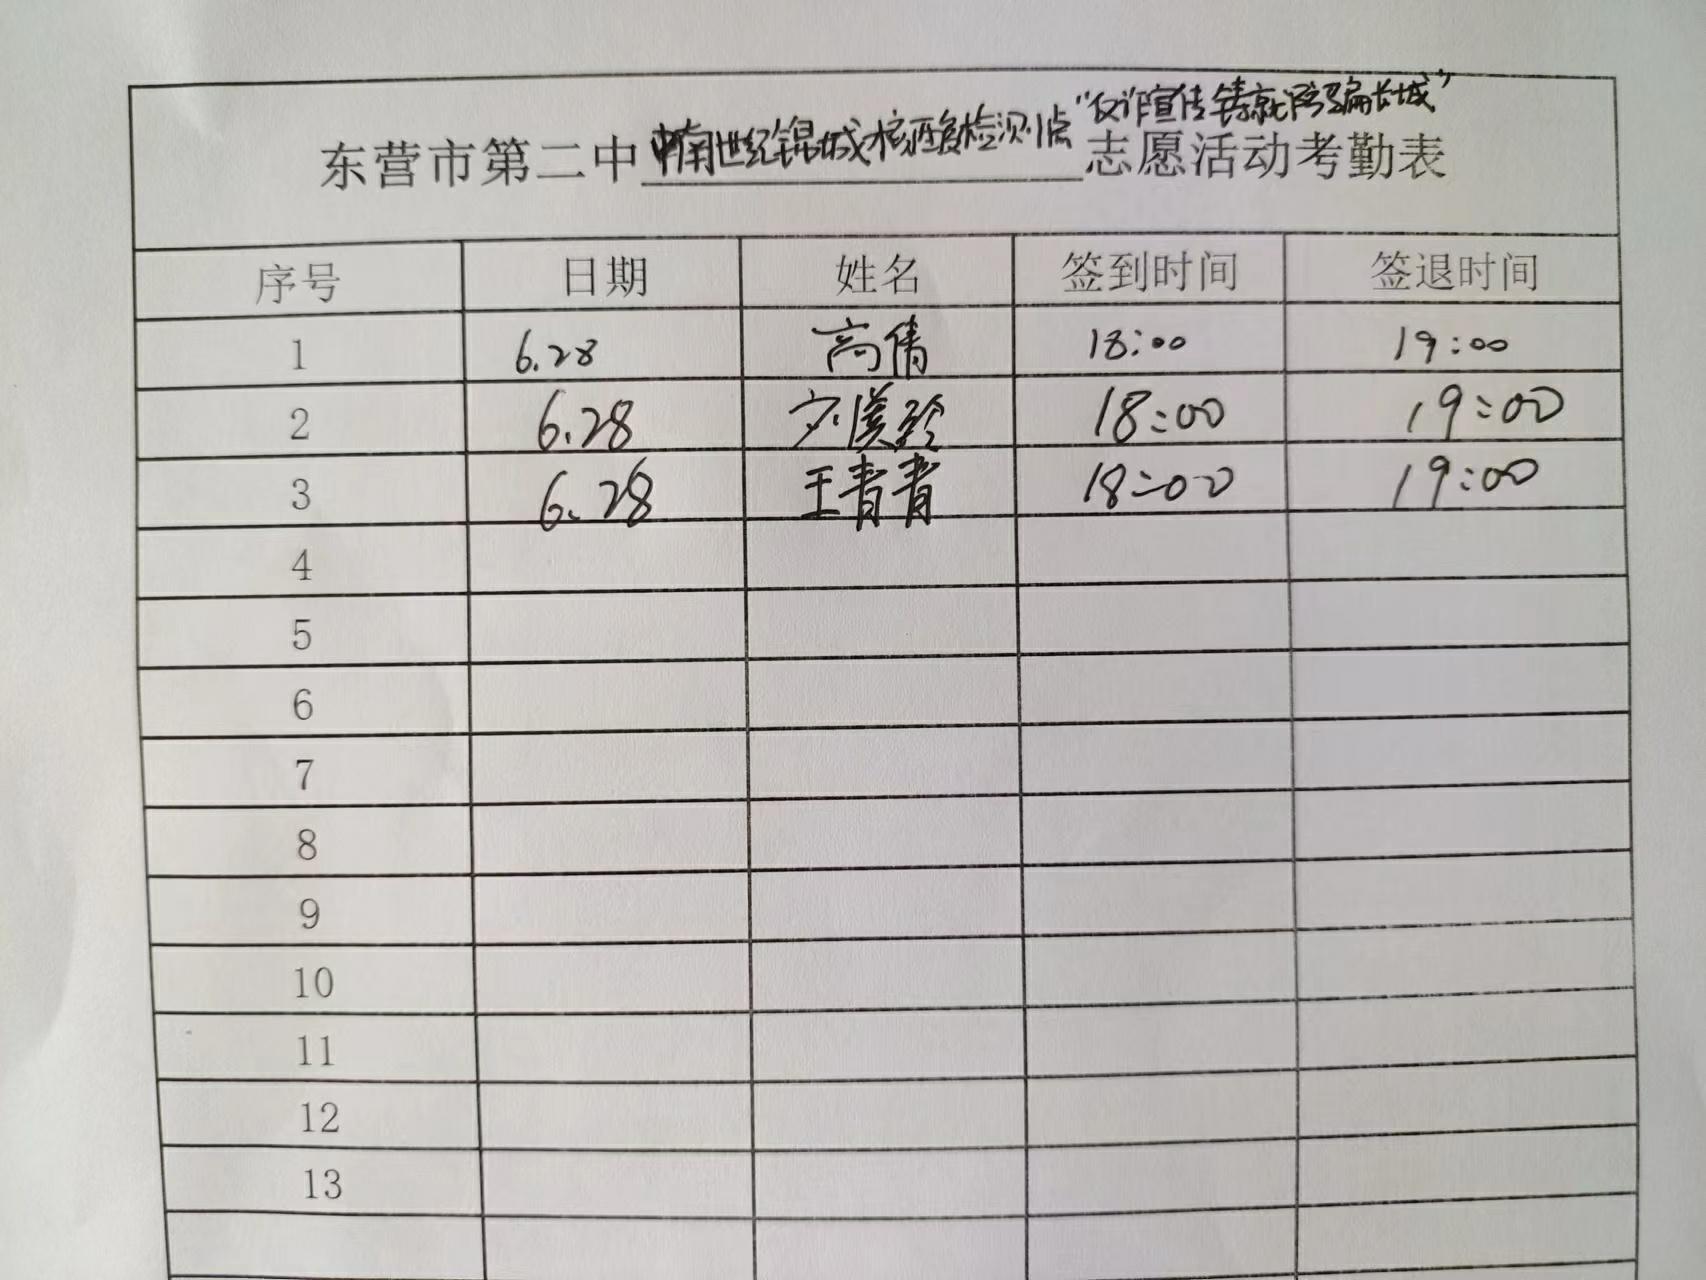 "反诈宣传铸就防骗长城"
东营市第二中中南世纪锦城核酸检测点志愿活动考勤表
序号 日期 姓名 签到时间 签退时间
1 6.28 高倩 18:00 19:00
2 6.28 18:00 19:00
3 6.28 王青青 18:00 19:00
4
5
6
7
8
9
10
11
12
13